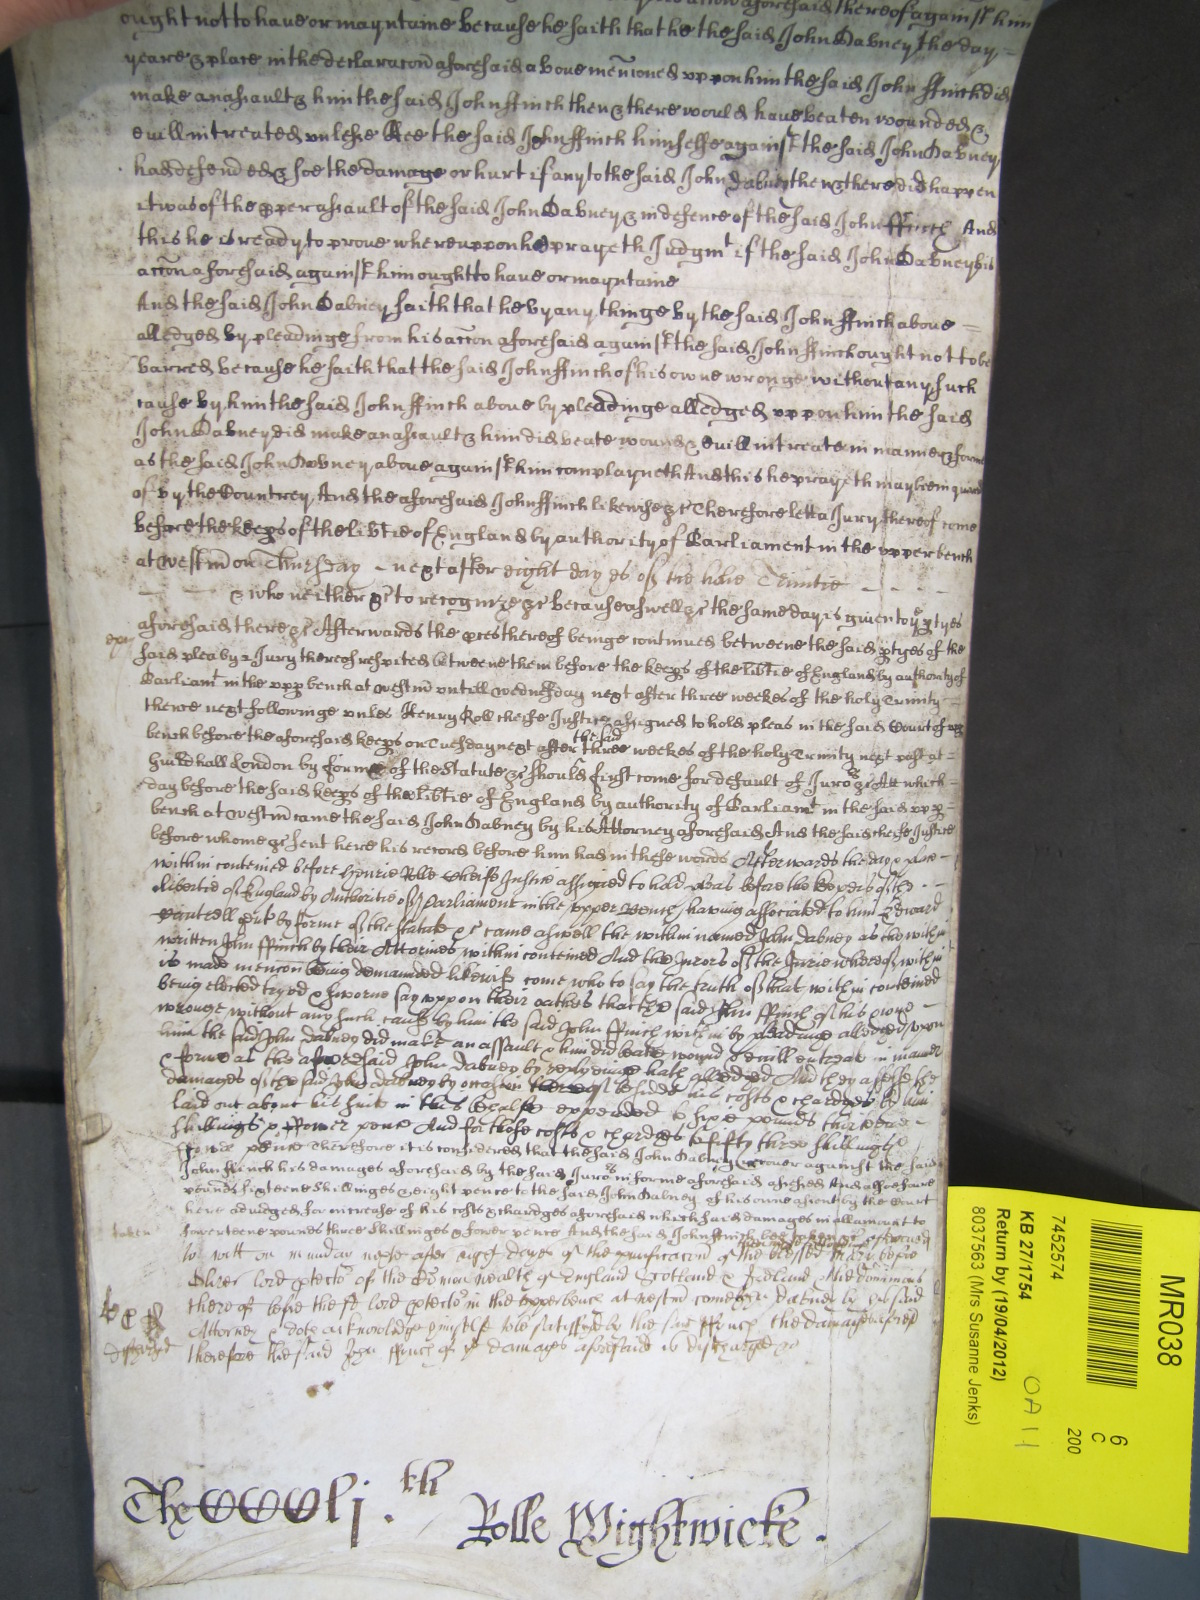 aforesaid thereof against him
ought not to have or mayntaine because he saith that he the said John Dabney the day
yeare & place in the declaracon aforesaid above mencioned uppon him the said John ffinch did
make an assault & him the said John ffinch then & there would have beaten wounded &
evill intreated unlesse hee the said John ffinch himselfe against the said John Dabney
had defended & soe the damage or hurt if any to the said John Dabney then & there did happen
it was of the pper assault of the said John Dabney & in defence of the said John ffinch And
this he is ready to prove whereuppon he prayeth Judgmt if the said John Dabney his
accon aforesaid against him ought to have or mayntaine
And the said John Dabney saith that he by any thinge by the said John ffinch above
alledged by pleadinge from his accon aforesaid against the said John ffinch ought not to be
barred because he saith that the said John ffinch of his owne wronge without any such
cause by him the said John ffinch above by pleadinge alledged uppon him the said
John Dabney did make an assault & him did beate wound & evill intreate in manner & forme
as the said John Dabney above against him complayneth And this he prayeth may be inquired
of by the Countrey And the aforesaid John ffinch likewise &c Therefore lett a Jury thereof come
before the keeps of the libtie of England by authority of Parliament in the upper bench
at Westm on Thursday next after eight dayes of the holie Trinitie
& who neither &c to recognize &c because aswell &c the same day is given to the ptyes
aforesaid there &c Afterwards the pces thereof beinge continued betweene the said ptyes of the
said plea by & Jury thereof respited betweene them before the keeps of the libtie of England by authority of
Parliamt in the upp bench at Westm untill Wednesday next after three weekes of the holy Trinity
thence next followinge unles Henry Roll cheife Justice assigned to hold pleas in the said Court of upp
bench before the aforesaid keeps on Tuesday next after the said three weekes of the holy Trinity next past at
Guildhall London by forme of the Statute &c should first come for default of Juro &c Att which
day before the said keeps of the libtie of England by authority of Parliamt in the said upp
bench at Westm came the said John Dabney by his Attorney aforesaid And the said cheife Justice
before whome &c sent here his record before him had in these words Afterwards the day & place
within conteined before Henrie Rolle Cheife Justice assigned to hold pleas before the keepers of the
libertie of England by Authoritie of Parliament in the upper Bench having associated to him Edward
by forme of the statute &c came aswell the within named John Dabney as the within
written John ffinch by their Attornies within conteined And the Jurors of the Jurie whereof within
is made mencon being demaunded likewise come who to say the truth of that within conteined
being elected tryed & sworne say uppon their oathes that the said John ffinch of his owne
wronge without any such cause by him the said John ffinch within by pleadinge alledged upon
him the said John Dabney did make an assault & him did beate wound & evill entreat in manner
& forme as the aforesaid John Dabney by replyeing hath alledged And they assesse the
damages of the said John Dabney by occasion besides his costs & chardges by him
laid out about his suite in this behalfe expended to sixe pounds thirteene
shillings & ffower pence And for those costs & chardges to fifty three shillings &
fower pence Therefore it is considered that the said John Dabney recover against the said
John ffinch his damages aforesaid by the said Juro in forme aforesaid assessed And also
pounds sixteene shillinges & eight pence to the said John Dabney of his owne assent by the Court
here adiudged for increase of his costs & chardges aforesaid which said damages in all amount to
fowerteene pounds three shillinges & fower pence And the said John ffinch bee taken &c Afterward
to witt on munday next after eight dayes of the purificacon of the blessed Mary before
Oliver lord ptecto of the Comon wealth of England Scotland & Ireland & the dominions
thereof before the sd lord ptecto in the upper bench at westm cometh Dabney by his said
Attorney & doth acknowledge himselfe to be satisfied by the said ffinch the damages aforesd
therefore the said John ffinch of ye damages aforesaid is discharged &c
discharged
Rolle Wightwicke .
MR038
6
C
200
7452574
KB 27/1754
Return by (19/04/2012)
8037563 (Mrs Susanne Jenks)